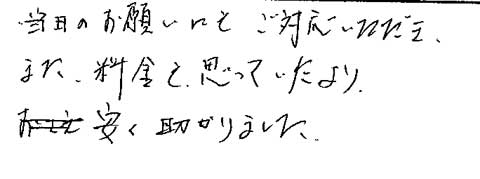 当日のお願いにもご対応いただき、
また、料金も思っていたより
安く助かりました。